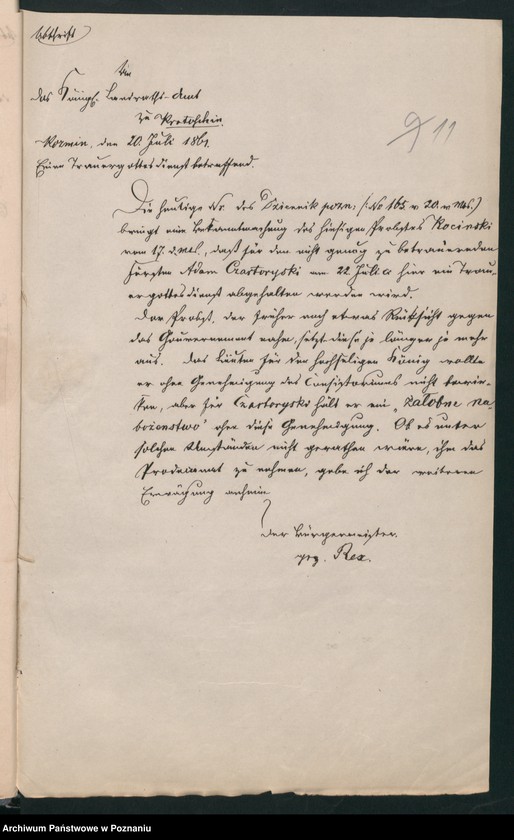 Abschrift
An
das Königl. Landraths-Amt
zu Krotoschin.
Kozmin, den 20. Juli 1861.
Einen Trauergottesdienst betreffend.
911
Die heutige Nr. des Dziennik pozn: /: No 165 v 20. v Mts.)
bringt eine Bekanntmachung des hiesigen Probstes Kocinski
vom 17. d. Mts., daß für den nicht genug zu betrauernden
Fürsten Adam Czartoryski am 22. Juli c hier ein Trau-
ergottesdienst abgehalten werden wird.
Der Probst, der früher noch etwas Rücksicht gegen
das Gouvernement nahm, setzt diese je länger je mehr
aus. Das Läuten für den hochseligen König wollte
er ohne Genehmigung des Consistoriums nicht bewir-
ken, aber für Czartoryski hält er ein „żałobne na-
bożenstwo" ohne diese Genehmigung. Ob es unter
solchen Umständen nicht gerathen wäre, ihm das
zu nehmen, gebe ich der weiteren
Erwägung anheim
Der Bürgermeister.
gez. Rex.
Archiwum Państwowe w Poznaniu